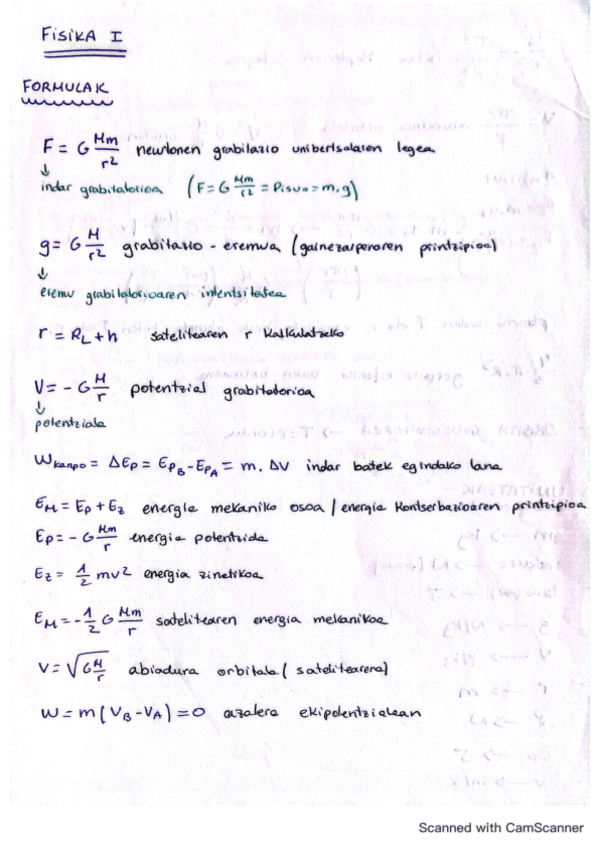 FISIKA I
FORMULAK
F = G Mm/r² newtonen grabitazio unibertsalaren legea
↓
indar grabitatorioa (F = G Mm/r² = Pisua = m.g)
g = G M/r² grabitazio-eremua (gainezarpenaren printzipioa)
↓
eremu grabitatorioaren intentsitatea
r = RL + h satelitearen r kalkulatzeko
V = - G M/r potentzial grabitatorioa
↓
potentziala
Wkanpo = ΔEp = EpB - EpA = m. ΔV indar batek egindako lana
EM = Ep + Ez energia mekaniko osoa / energia kontserbazioaren printzipioa
Ep = - G Mm/r energia potentziala
Ez = 1/2 mv² energia zinetikoa
EM = - 1/2 G Mm/r satelitearen energia mekanikoa
V = √(G M/r) abiadura orbitala (satelitearena)
W = m (VB - VA) = 0 azalera ekipotentzialean
Scanned with CamScanner